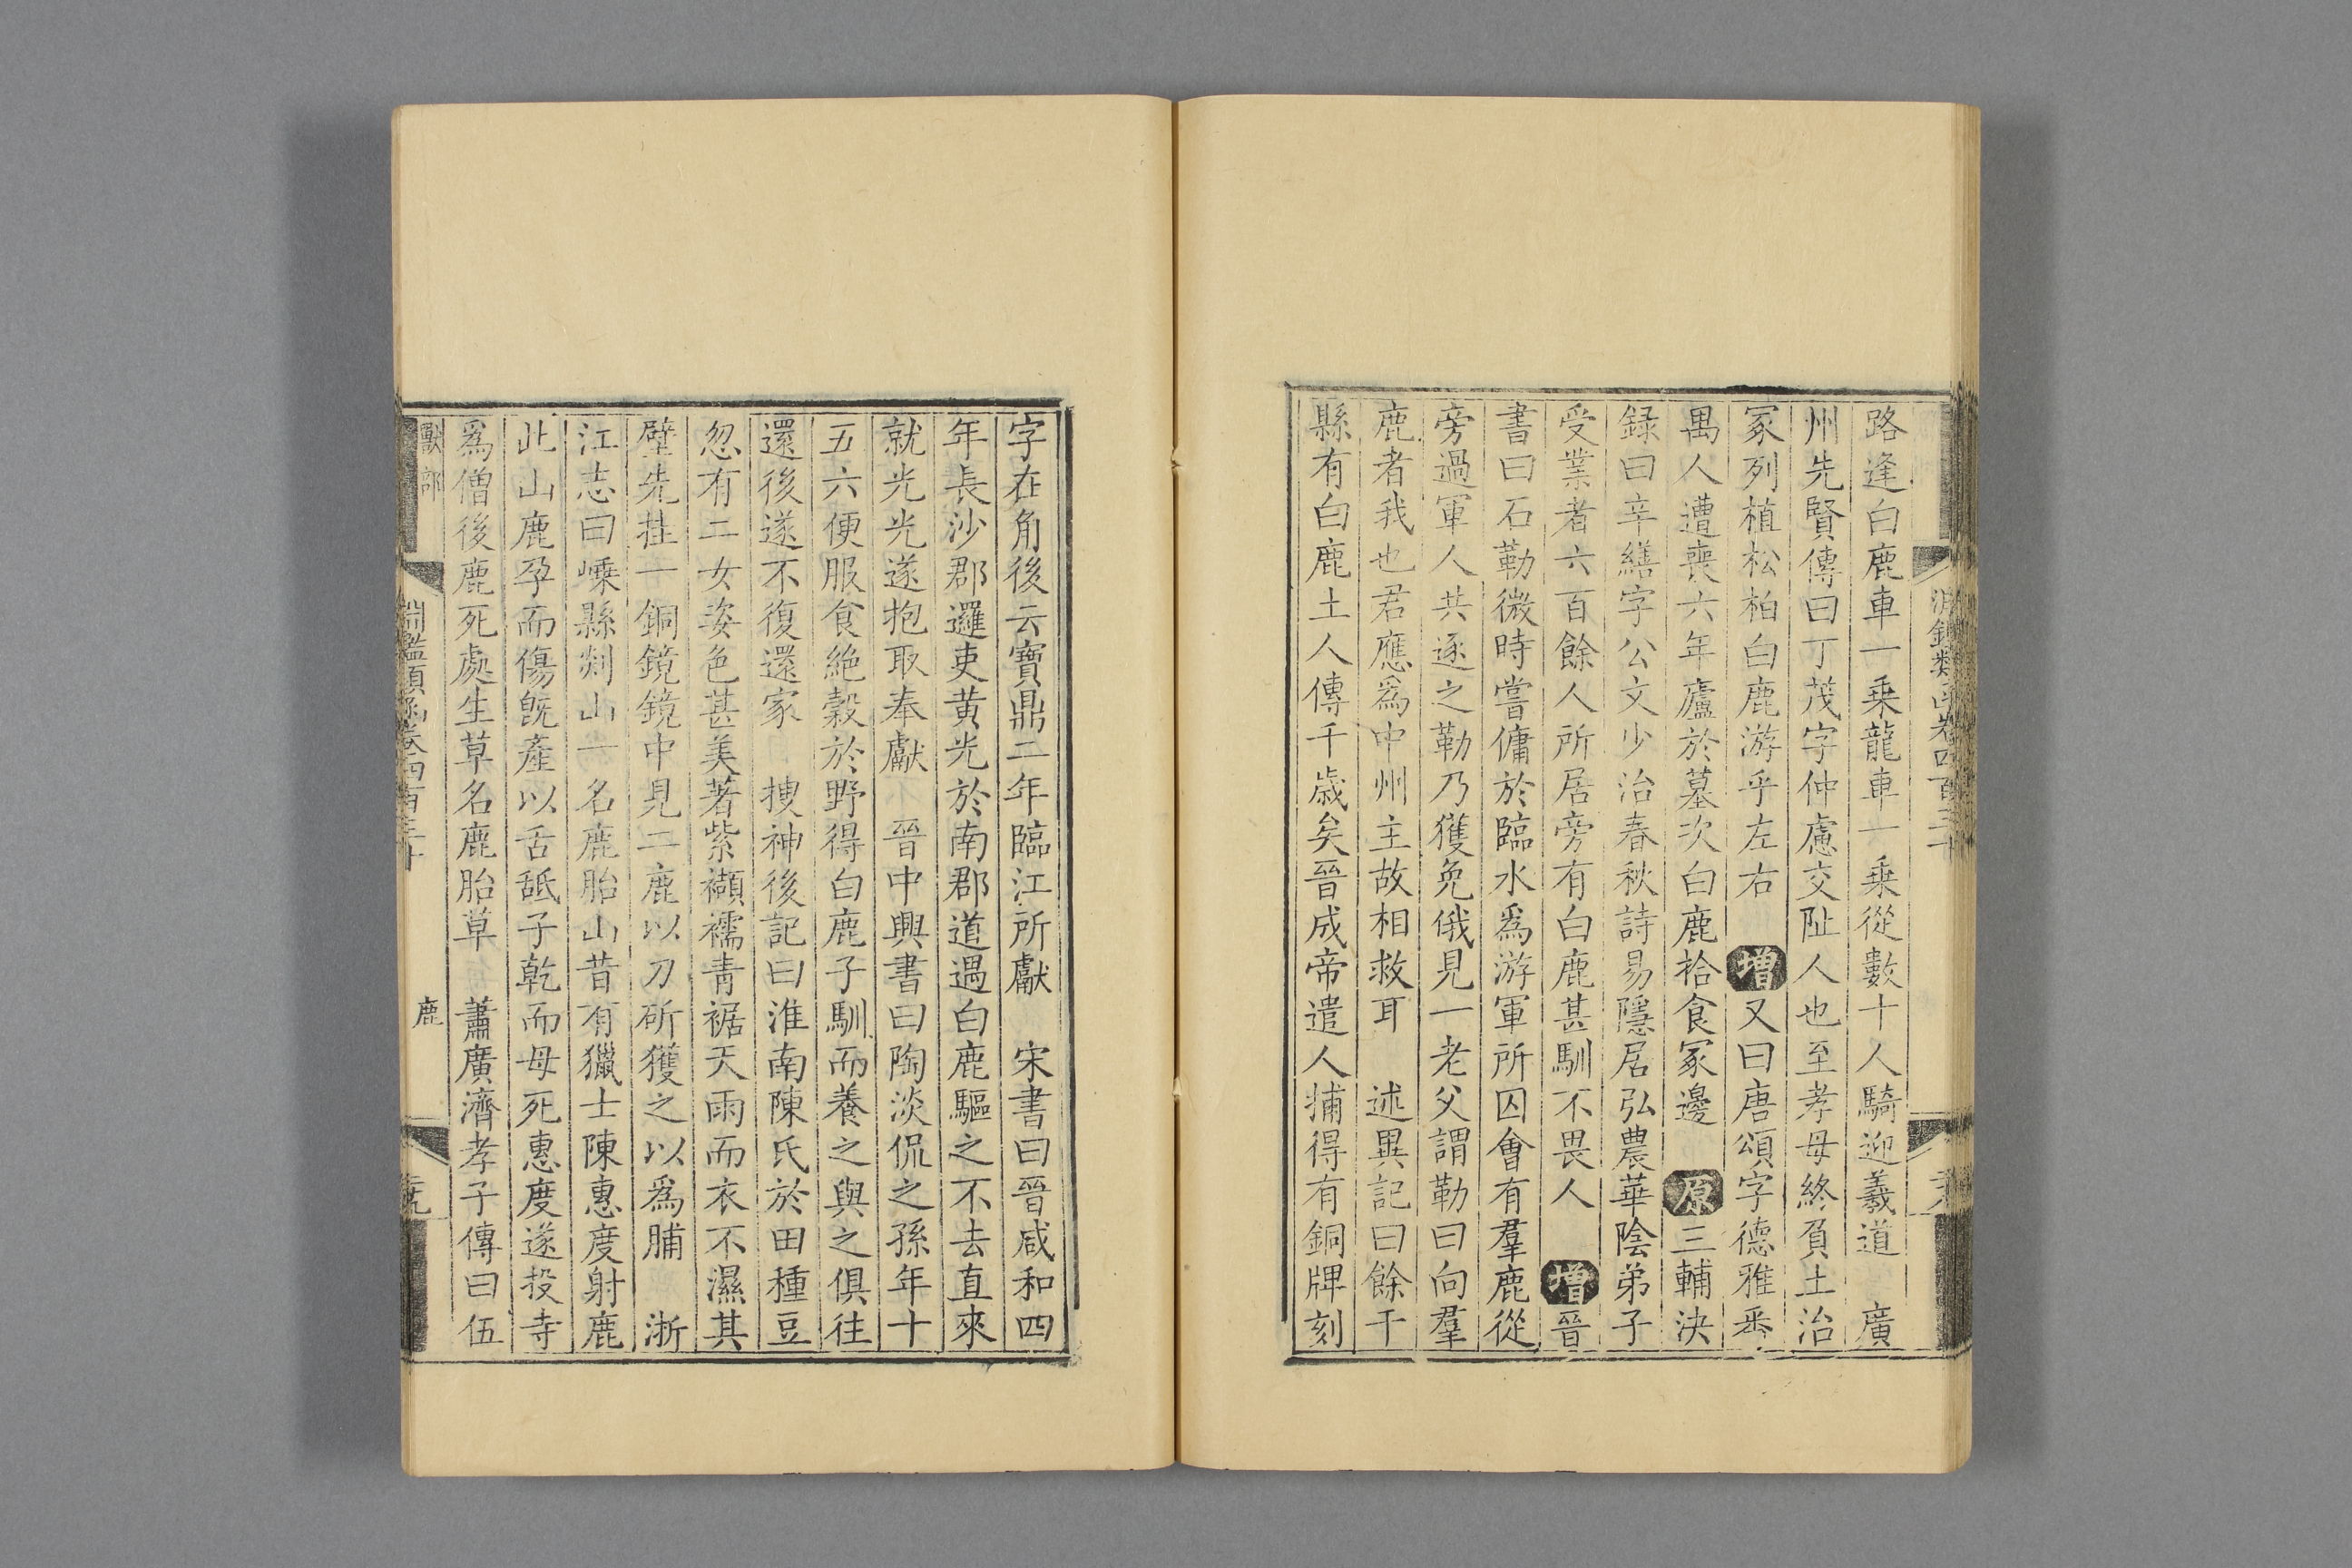 路逢白鹿車一乘龍車一乘從數十人騎迎羲道　廣
州先賢傳曰丁茂字仲慮交阯人也至孝母終負土治
冢列植松柏白鹿游乎左右　增又曰唐頌字德雅番
禺人遭喪六年廬於墓次白鹿拾食冢邊　原三輔決
録曰辛繕字公文少治春秋詩易隱居弘農華陰弟子
受業者六百餘人所居旁有白鹿甚馴不畏人　增晉
書曰石勒微時嘗傭於臨水爲游軍所囚會有羣鹿從
旁過軍人共逐之勒乃獲免俄見一老父謂勒曰向羣
鹿者我也君應爲中州主故相救耳　述異記曰餘干
縣有白鹿土人傳千歳矣晉成帝遣人捕得有銅牌刻
字在角後云寶鼎二年臨江所獻　宋書曰晉咸和四
年長沙郡邏吏黄光於南郡道遇白鹿驅之不去直來
就光光遂抱取奉獻　晉中興書曰陶淡侃之孫年十
五六便服食絶穀於野得白鹿子馴而養之與之俱往
還後遂不復還家　搜神後記曰淮南陳氏於田種豆
忽有二女姿色甚美著紫襭襦青裾天雨而衣不濕其
壁先挂一銅鏡鏡中見二鹿以刀斫獲之以爲脯　浙
江志曰嵊縣剡山一名鹿胎山昔有獵士陳惠度射鹿
此山鹿孕而傷旣產以舌䑛子乾而母死惠度遂投寺
爲僧後鹿死處生草名鹿胎草　蕭廣濟孝子傳曰伍
獸部　淵鑑類函卷四百三十　鹿